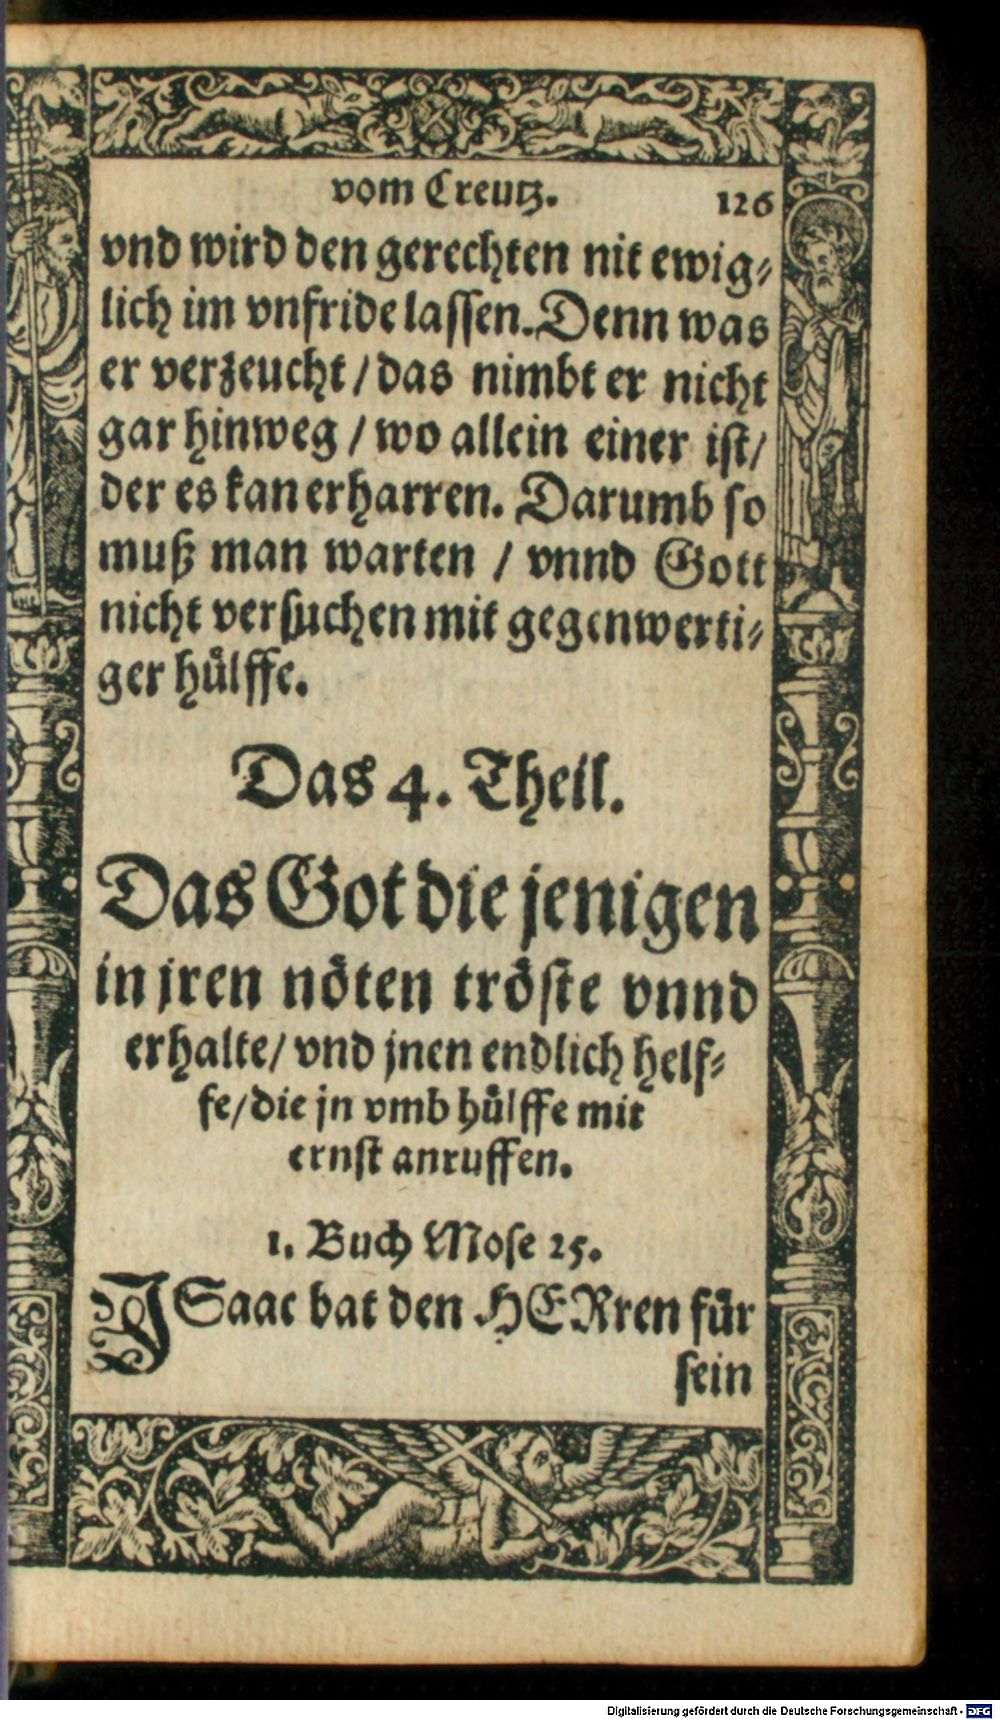 vom Creutz. 126
vnd wird den gerechten nit ewig⸗
lich im vnfride lassen. Denn was
er verzeucht / das nimbt er nicht
gar hinweg / wo allein einer ist /
der es kan erharren. Darumb so
muß man warten / vnnd Gott
nicht versuchen mit gegenwerti⸗
ger huͤlffe.
Das 4. Theil.
Das Got die jenigen
in jren noͤten troͤste vnnd
erhalte / vnd jnen endlich helf⸗
fe / die jn vmb huͤlffe mit
ernst anruffen.
1. Buch Mose 25.
ISaac bat den HERren fuͤr
sein
Digitalisierung gefördert durch die Deutsche Forschungsgemeinschaft - DFG